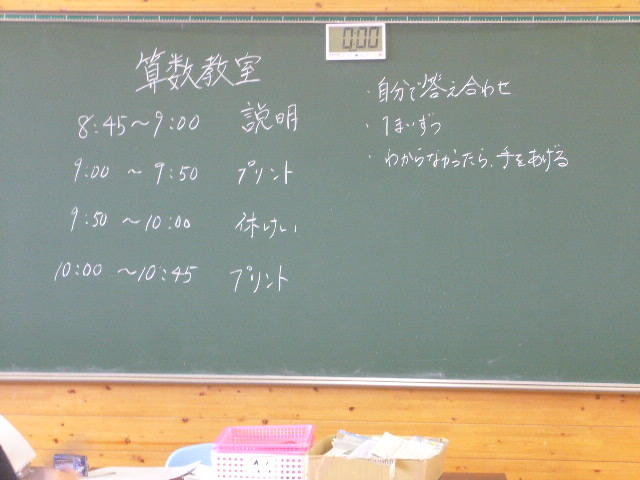 算数教室
8:45～9:00 説明
9:00 ～ 9:50 プリント
9:50 ～ 10:00 休けい
10:00 ～10:45 プリント
0:00
・自分で答え合わせ
・1まいずつ
・わからなかったら、手をあげる